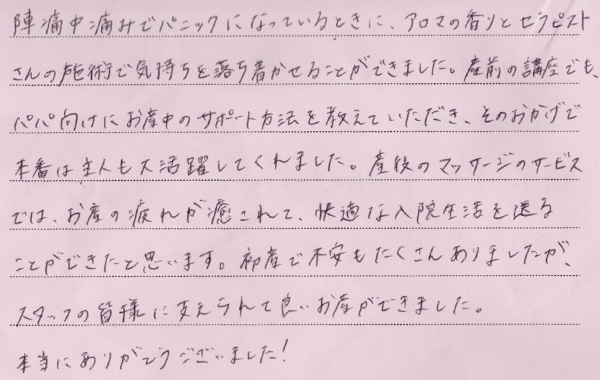 陣痛中痛みでパニックになっているときに、アロマの香りとセラピスト
さんの施術で気持ちを落ち着かせることができました。産前の講座でも、
パパ向けにお産中のサポート方法を教えていただき、そのおかげで
本番は主人も大活躍してくれました。産後のマッサージのサービス
では、お産の疲れが癒されて、快適な入院生活を送る
ことができたと思います。初産で不安もたくさんありましたが、
スタッフの皆様に支えられて良いお産ができました。
本当にありがとうございました!